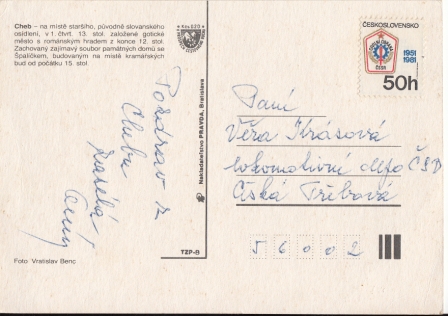 Cheb – na místě staršího, původně slovanského
osídlení, v 1. čtvrt. 13. stol. založené gotické
město s románským hradem z konce 12. stol.
Zachovaný zajímavý soubor památných domů se
Špalíčkem, budovaným na místě kramářských
bud od počátku 15. stol.
Pozdrav z
Chebu
Foto Vratislav Benc
Nakladatelství PRAVDA, Bratislava
TZP-B
ČESKOSLOVENSKO
1951
1981
ČSSR
50h
Paní
Věra Krásová
lokomotivní depo ČSD
Česká Třebová
56002